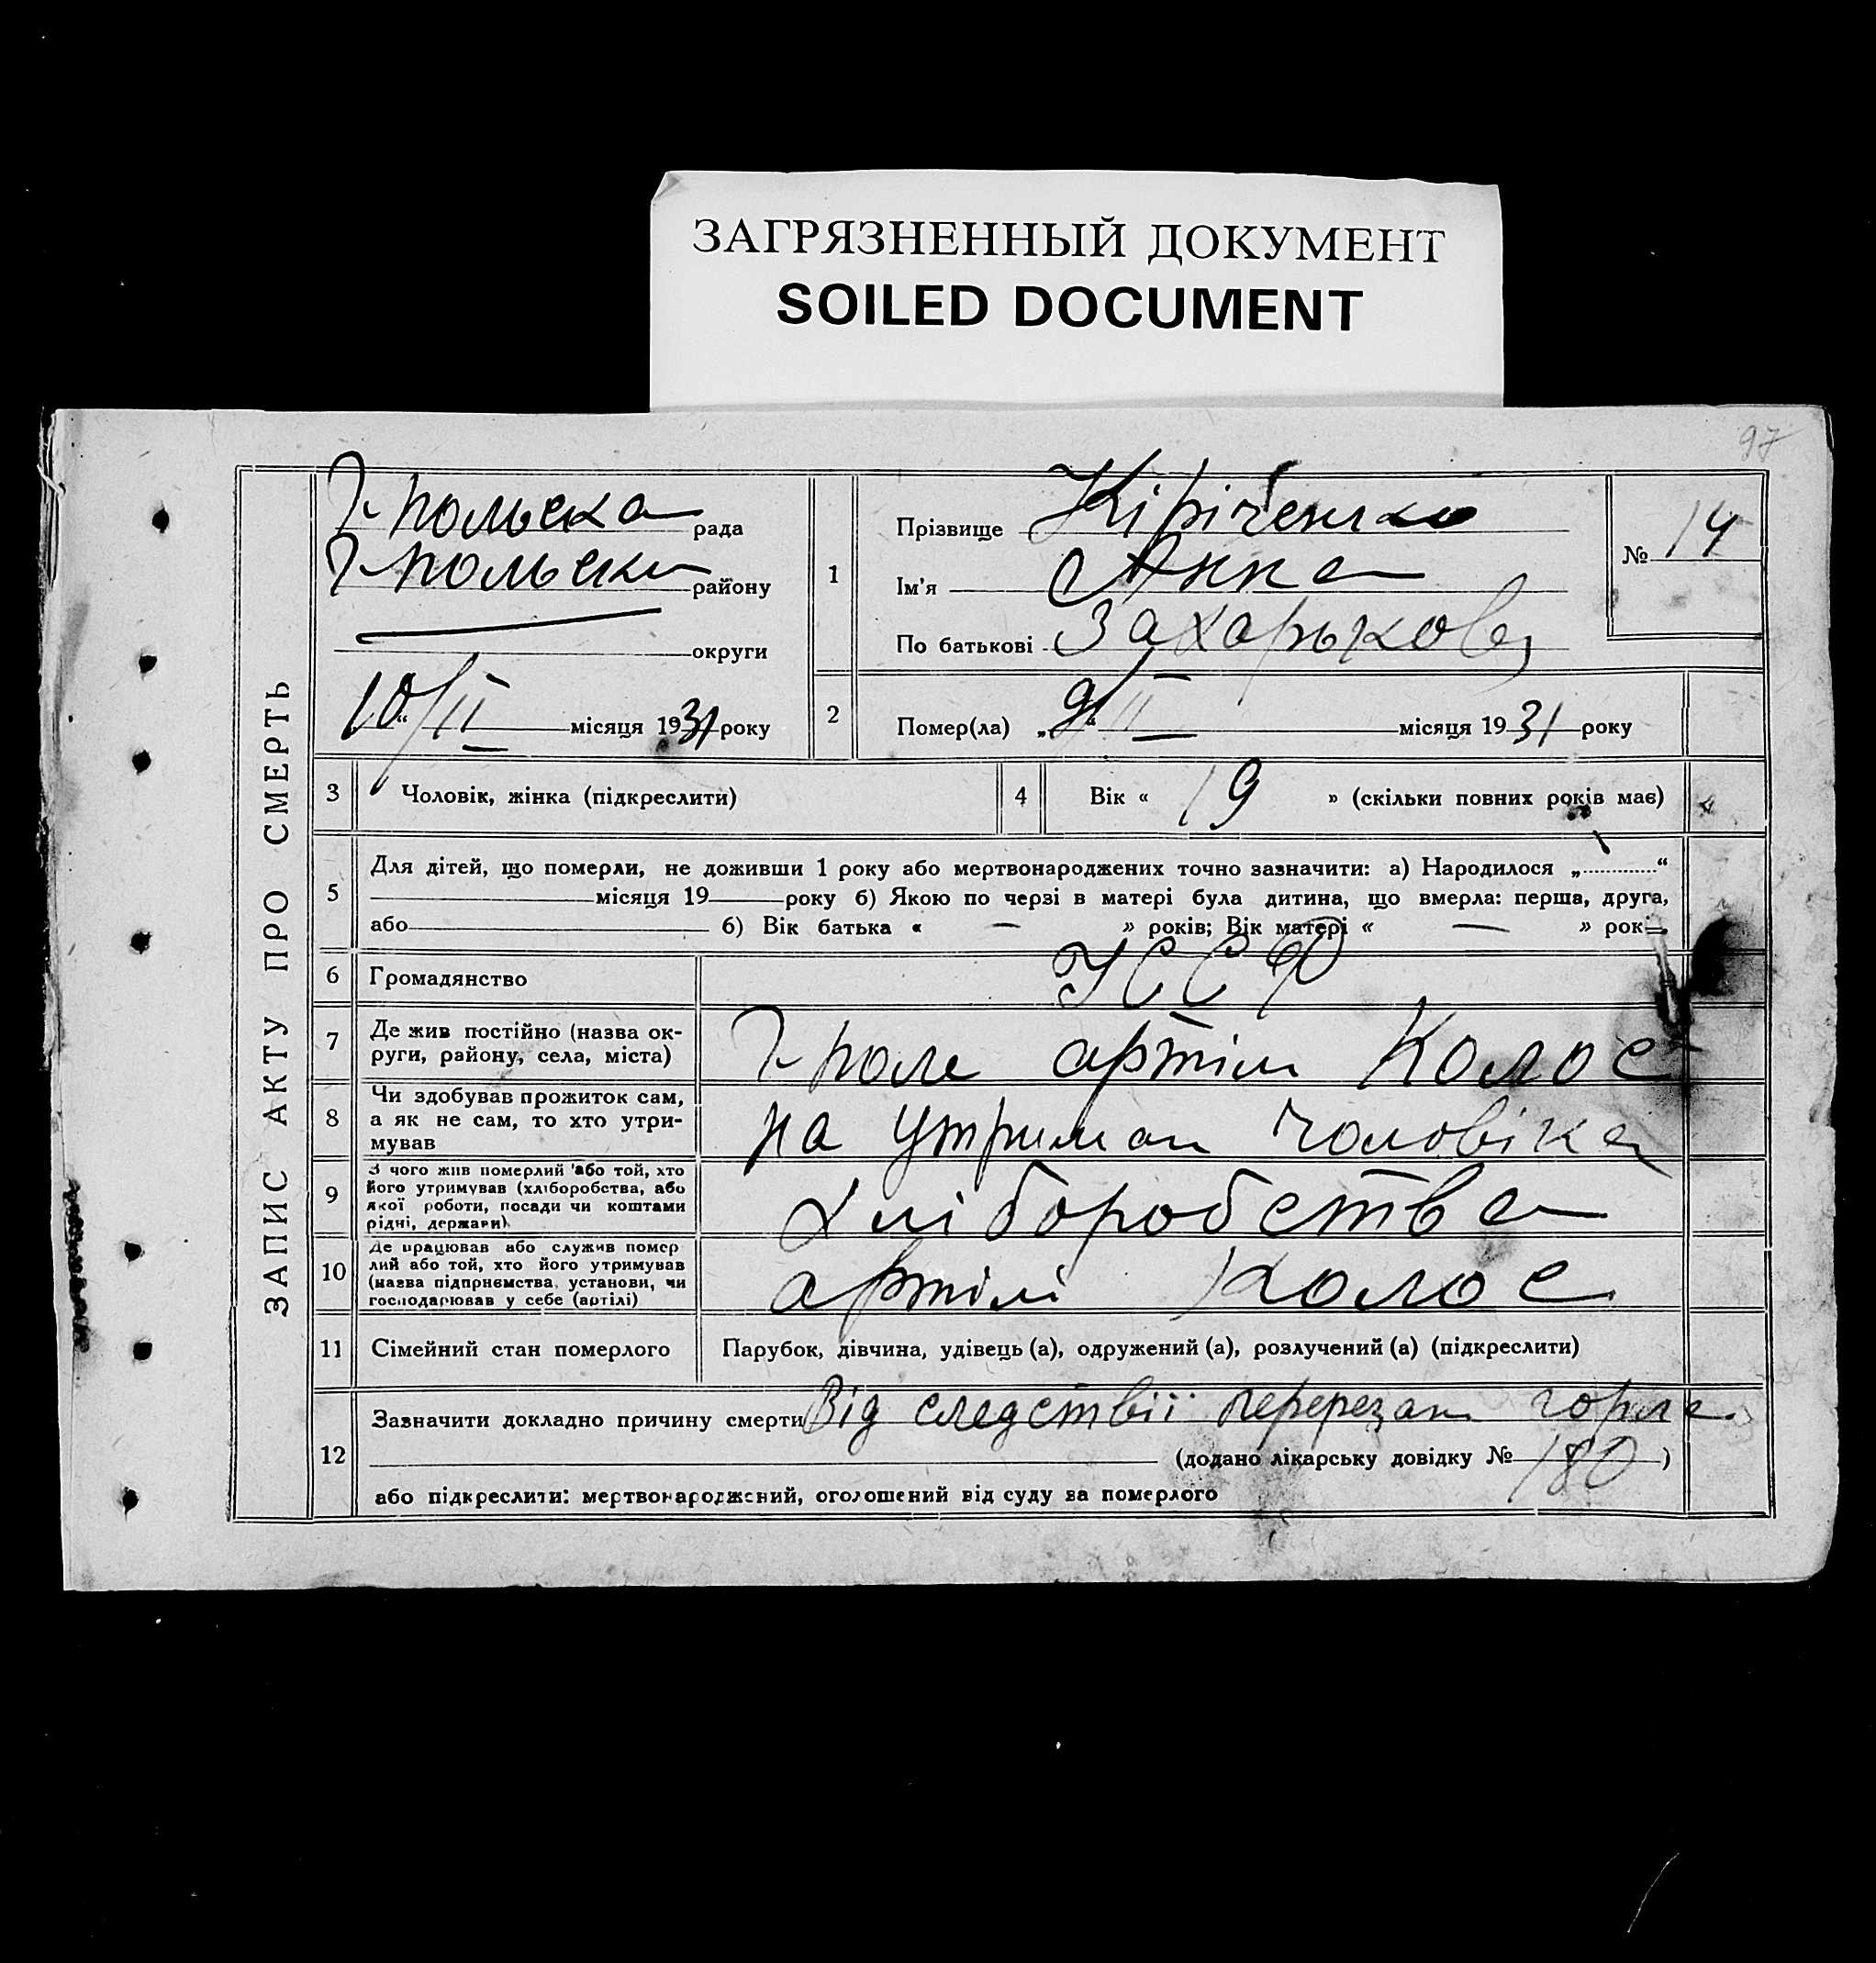 ЗАГРЯЗНЕННЫЙ ДОКУМЕНТ
SOILED DOCUMENT
97
ЗАПИС АКТУ ПРО СМЕРТЬ
Г-польска рада
Г-польски району
округи
10/II місяця 1931 року
1
Прізвище Кіріченко
Ім'я Анна
По батькові Захарькова
№ 14
2
Помер(ла) „9“ II місяця 1931 року
3 Чоловік, жінка (підкреслити)
4 Вік « 19 » (скільки повних років має)
5
Для дітей, що померли, не доживши 1 року або мертвонароджених точно зазначити: а) Народилося „ “
місяця 19 року б) Якою по черзі в матері була дитина, що вмерла: перша, друга,
або б) Вік батька « — » років; Вік матері « — » років.
6 Громадянство УССР
7
Де жив постійно (назва ок-
руги, району, села, міста)
Г-поле артіли Колос
8
Чи здобував прожиток сам,
а як не сам, то хто утри-
мував
на утриман чоловіка
9
З чого жив померлий або той, хто
його утримував (хліборобства, або
якої роботи, посади чи коштами
рідні, держави)
хліборобства
10
Де працював або служив помер
лий або той, хто його утримував
(назва підприємства, установи, чи
господарював у себе (артілі)
артілі Колос
11 Сімейний стан померлого Парубок, дівчина, удівець (а), одружений (а), розлучений (а) (підкреслити)
12
Зазначити докладно причину смерти Від следствії перерезан горла
(додано лікарську довідку № 180 )
або підкреслити: мертвонароджений, оголошений від суду за померлого